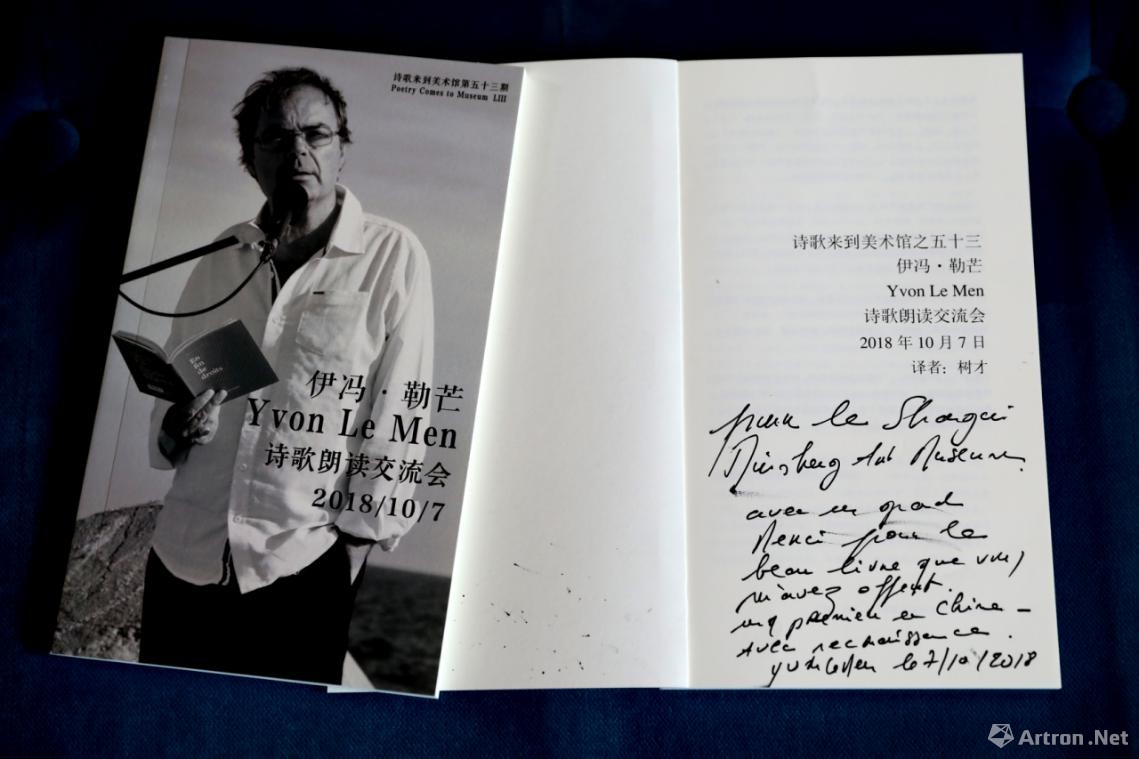 诗歌来到美术馆第五十三期
Poetry Comes to Museum LIII
En
fin
de
droits
伊冯·勒芒
Yvon Le Men
诗歌朗读交流会
2018/10/7
诗歌来到美术馆之五十三
伊冯·勒芒
Yvon Le Men
诗歌朗读交流会
2018年10月7日
译者：树才
pour le Shangai
Minsheng Art Museum
avec un grand
Merci pour le
beau livre que vous
m'avez offert.
mon premier en Chine –
Avec reconnaissance.
Yvon Le Men le 7/10/2018
Artron.Net